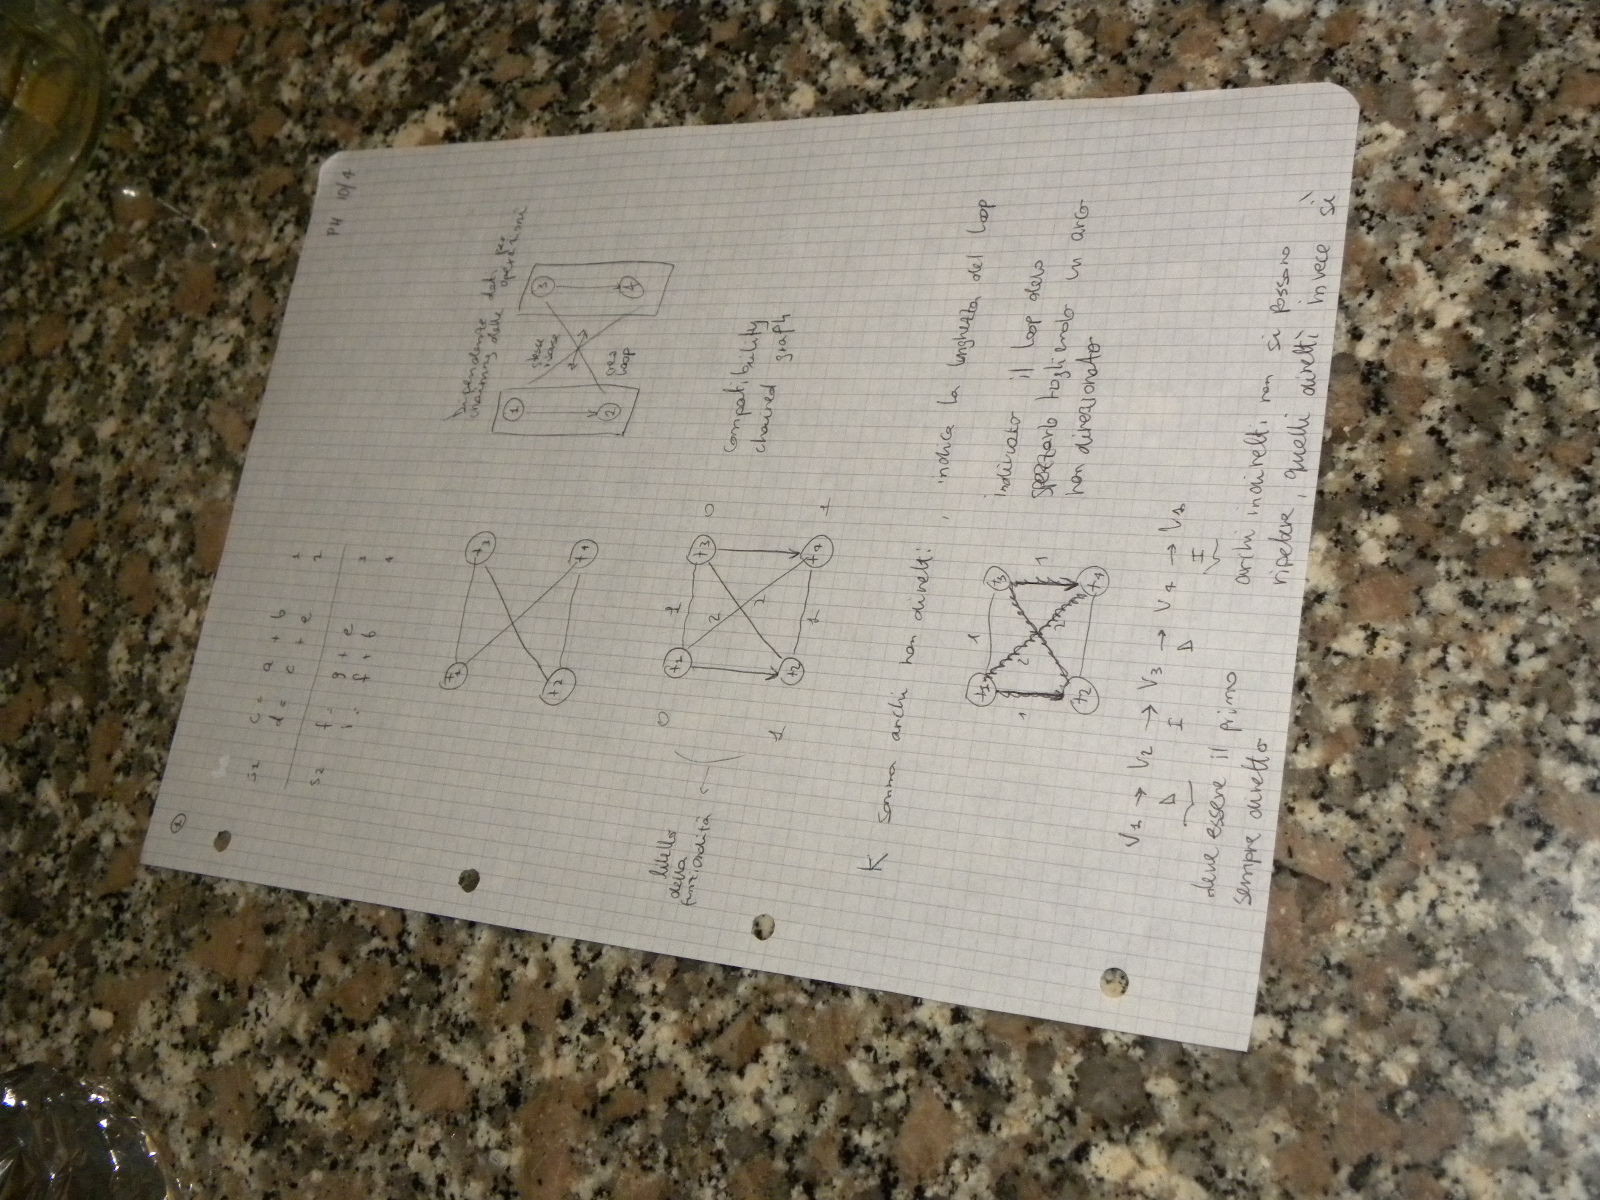 1
PH 10/4
c = a + b 1
d = c + e 2
S2 f = g + e 3
i = f + b 4
Dipendenze dati per
chaining delle operazioni
1
3
stesse
risorse
2
4
loop
+1 +3
+2 +4
livello
della
0 +1 1 +3 0
2 2
1 +2 1 +4 1
compatibility
chained graph
K somma archi non diretti, indica la lunghezza del loop
+1 1 +3
1 2 2 1
+2 +4
individuato il loop devo
spezzarlo togliendo un arco
non direzionato
V1 → V2 → V3 → V4 → V1
D I D I
deve essere il primo
sempre diretto
archi indiretti non si possono
ripetere, quelli diretti invece sì